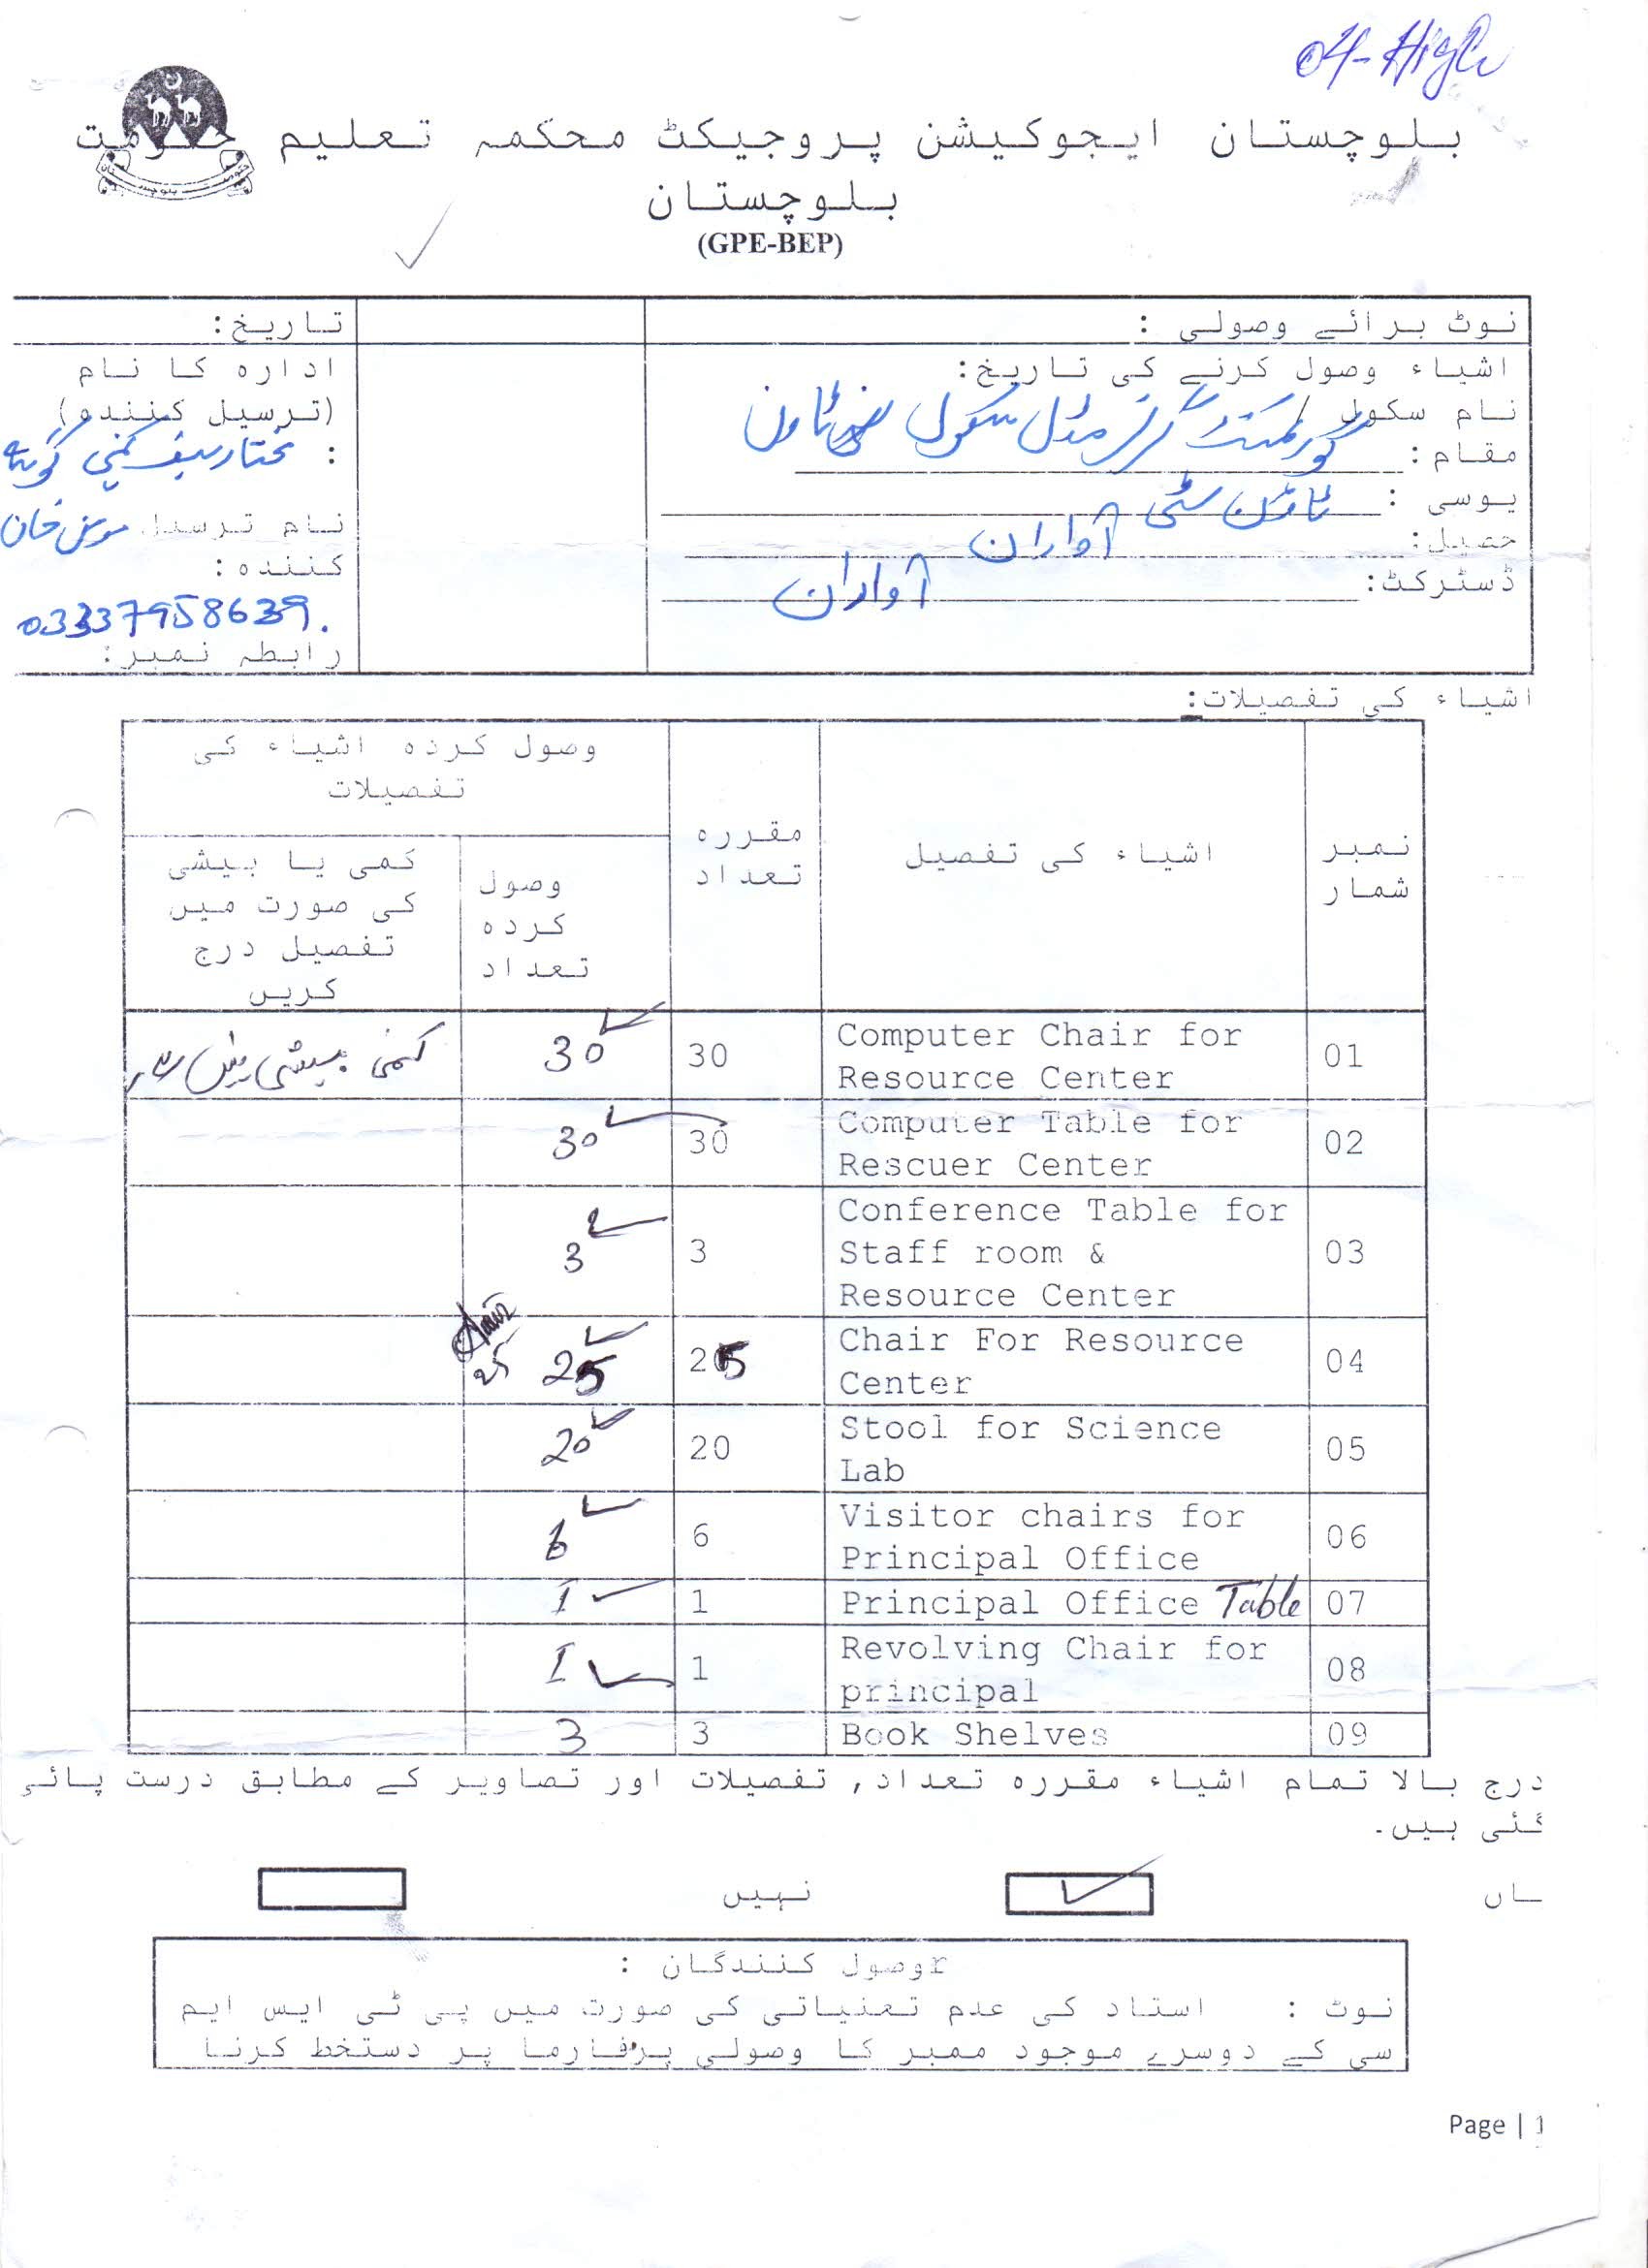 04-High
بلوچستان ایجوکیشن پروجیکٹ محکمہ تعلیم حکومت
بلوچستان
(GPE-BEP)
نوٹ برائے وصولی :
تاریخ:
اشیاء وصول کرنے کی تاریخ:
نام سکول / گورنمنٹ گرلز مڈل سکول ٹاون
مقام:
یوسی : ٹاؤن سٹی
حصیل: آواران
ڈسٹرکٹ: آواران
ادارہ کا نام
(ترسیل کنندو)
: مختار سیف کمپنی کوئٹہ
نام ترسیل خان
کنندہ:
03337958639.
رابطہ نمبر:
اشیاء کی تفصیلات:
نمبر شمار
اشیاء کی تفصیل
مقررہ تعداد
وصول کردہ اشیاء کی تفصیلات
وصول کردہ تعداد
کمی یا بیشی کی صورت میں تفصیل درج کریں
01 Computer Chair for Resource Center 30 30 کمی بیشی
02 Computer Table for Rescuer Center 30 30
03 Conference Table for Staff room & Resource Center 3 3
04 Chair For Resource Center 25 25 25
05 Stool for Science Lab 20 20
06 Visitor chairs for Principal Office 6 6
07 Principal Office Table 1 1
08 Revolving Chair for principal 1 1
09 Book Shelves 3 3
درج بالا تمام اشیاء مقررہ تعداد, تفصیلات اور تصاویر کے مطابق درست پائی
گئی ہیں۔
ہاں نہیں
rوصول کنندگان :
نوٹ : استاد کی عدم تعنیاتی کی صورت میں پی ٹی ایس ایم
سی کے دوسرے موجود ممبر کا وصولی پرفارما پر دستخط کرنا
Page | 1